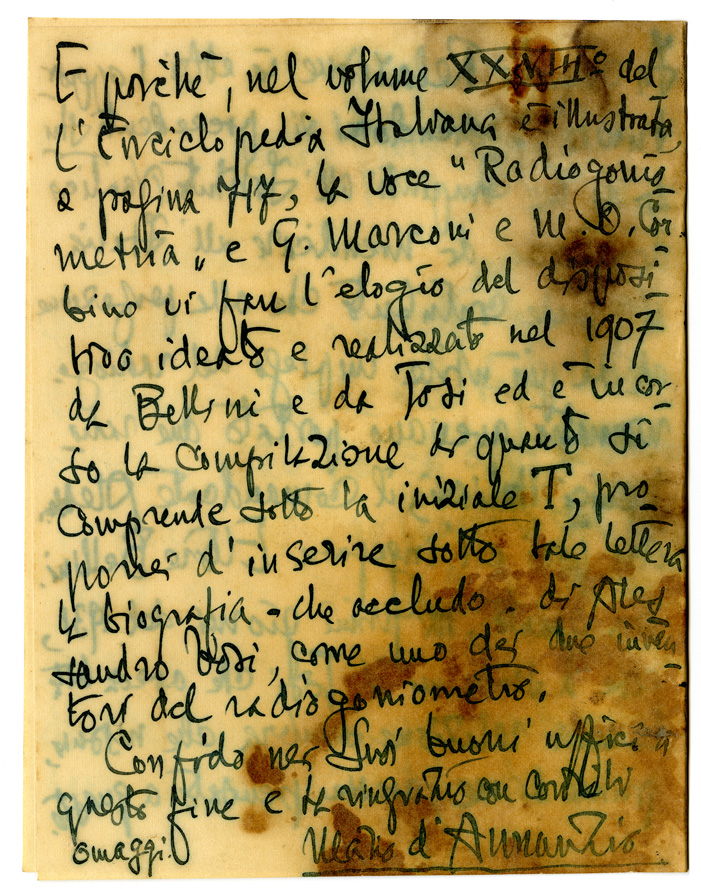 E poichè, nel volume XXVIII° del
l'Enciclopedia Italiana è illustrata,
a pagina 717, la voce "Radiogonio-
metria" e G. Marconi e M. O. Cor-
bino vi fan l'elogio del disposi-
tivo ideato e realizzato nel 1907
da Bellini e da Tosi ed è in cor-
so la compilazione di quanto si
comprende sotto la iniziale T, pro-
porrei d'inserire sotto tale lettera
la biografia - che accludo - di Ales-
sandro Tosi, come uno dei due inven-
tori del radiogoniometro.
Confido nei Suoi buoni uffici a
questo fine e La ringrazio con cordiali
omaggi.
d'Annunzio